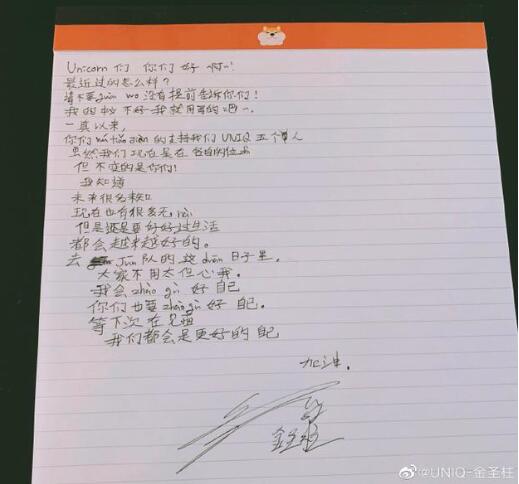 Unicorn们 你们好 啊~!
最近过的怎么样?
请不要guài wo没有提前告诉你们!
我的 不好 我就用写的吧~.
一真以来,
你们 的支持我们 UNIQ 五个人
虽然我们现在是在各自的位
但不变的是你们!
我知道
未来很多未知
现在也有很多无
但是还是要好好过生活
都会越来越好的。
去 Jūn队的这duàn日子里,
大家不用太但心我。
我会zhào gù好自己
你们也要zhào gù好自己.
等下次在见面
我们都会是更好的自己
加油.
@UNIQ-金圣柱